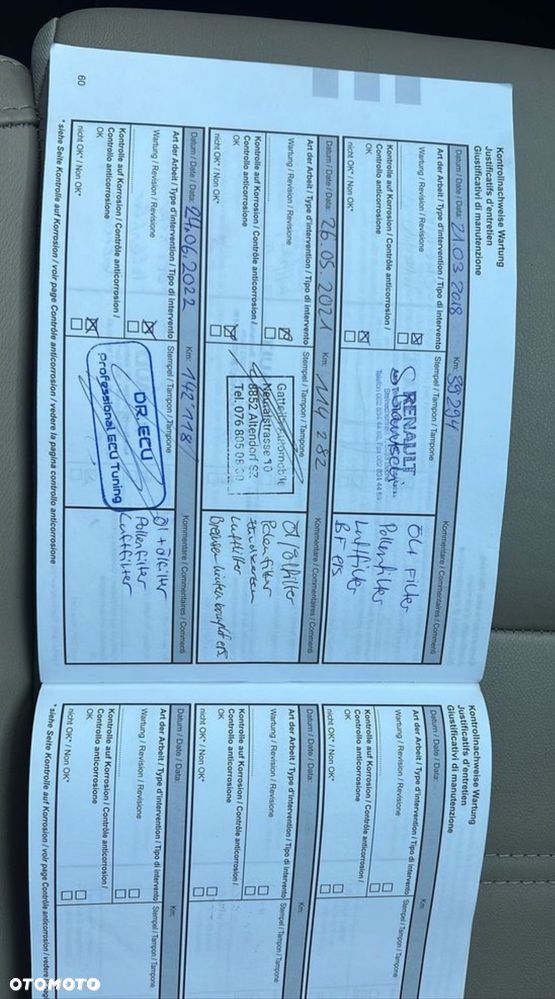 Kontrollnachweise Wartung
Justificatifs d'entretien
Giustificativi di manutenzione
Datum / Date / Data: 21 03 2018 Km: 89 294
Art der Arbeit / Type d'intervention / Tipo di intervento Stempel / Tampon / Tampone Kommentare / Commentaires / Commenti
Wartung / Revision / Revisione
Kontrolle auf Korrosion / Contrôle anticorrosion /
Controllo anticorrosione
OK
nicht OK* / Non OK*
RENAULT
Pollenfilter
Luftfilter
Datum / Date / Data: 26 05 2021 Km: 114 282
Art der Arbeit / Type d'intervention / Tipo di intervento Stempel / Tampon / Tampone Kommentare / Commentaires / Commenti
Wartung / Revision / Revisione
Kontrolle auf Korrosion / Contrôle anticorrosion /
Controllo anticorrosione
OK
nicht OK* / Non OK*
8852 Altendorf SZ
Öl / Ölfilter
Polenfilter
Luftfilter
Datum / Date / Data: 24.06.2022 Km: 142 118
Art der Arbeit / Type d'intervention / Tipo di intervento Stempel / Tampon / Tampone Kommentare / Commentaires / Commenti
Wartung / Revision / Revisione
Kontrolle auf Korrosion / Contrôle anticorrosion /
Controllo anticorrosione
OK
nicht OK* / Non OK*
DR.ECU
Professional ECU Tuning
Öl + Ölfilter
Pollenfilter
Luftfilter
* siehe Seite Kontrolle auf Korrosion / voir page Contrôle anticorrosion / vedere la pagina controllo anticorrosione
60
Kontrollnachweise Wartung
Justificatifs d'entretien
Giustificativi di manutenzione
Datum / Date / Data: Km:
Art der Arbeit / Type d'intervention / Tipo di intervento Stempel / Tampon / Tampone
Wartung / Revision / Revisione
Kontrolle auf Korrosion / Contrôle anticorrosion /
Controllo anticorrosione
OK
nicht OK* / Non OK*
Datum / Date / Data: Km:
Art der Arbeit / Type d'intervention / Tipo di intervento Stempel / Tampon / Tampone
Wartung / Revision / Revisione
Kontrolle auf Korrosion / Contrôle anticorrosion /
Controllo anticorrosione
OK
nicht OK* / Non OK*
Datum / Date / Data: Km:
Art der Arbeit / Type d'intervention / Tipo di intervento Stempel / Tampon / Tampone
Wartung / Revision / Revisione
Kontrolle auf Korrosion / Contrôle anticorrosion /
Controllo anticorrosione
OK
nicht OK* / Non OK*
* siehe Seite Kontrolle auf Korrosion / voir page Contrôle anticorrosion / vedere la
OTOMOTO